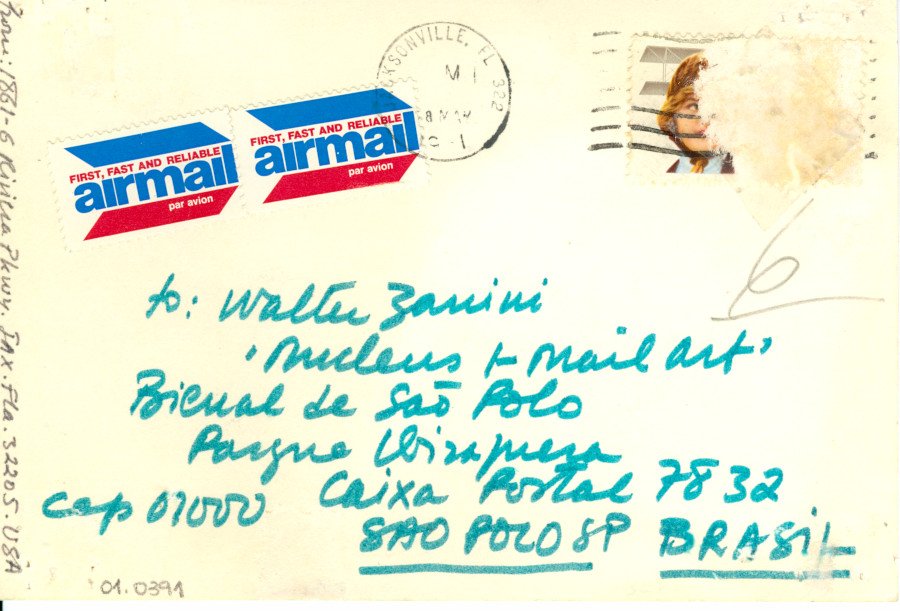 From: 1861-6 Pkwy. JAX. Fla. 32205. USA
JACKSONVILLE, FL 322
FIRST, FAST AND RELIABLE
airmail
par avion
FIRST, FAST AND RELIABLE
airmail
par avion
6
to: Walter Zanini
'Nucleus I-mail art'
Bienal de São Polo
Parque Ibirapuera
Caixa Postal 7832
cap 01000
SAO POLO SP BRASIL
01.0391